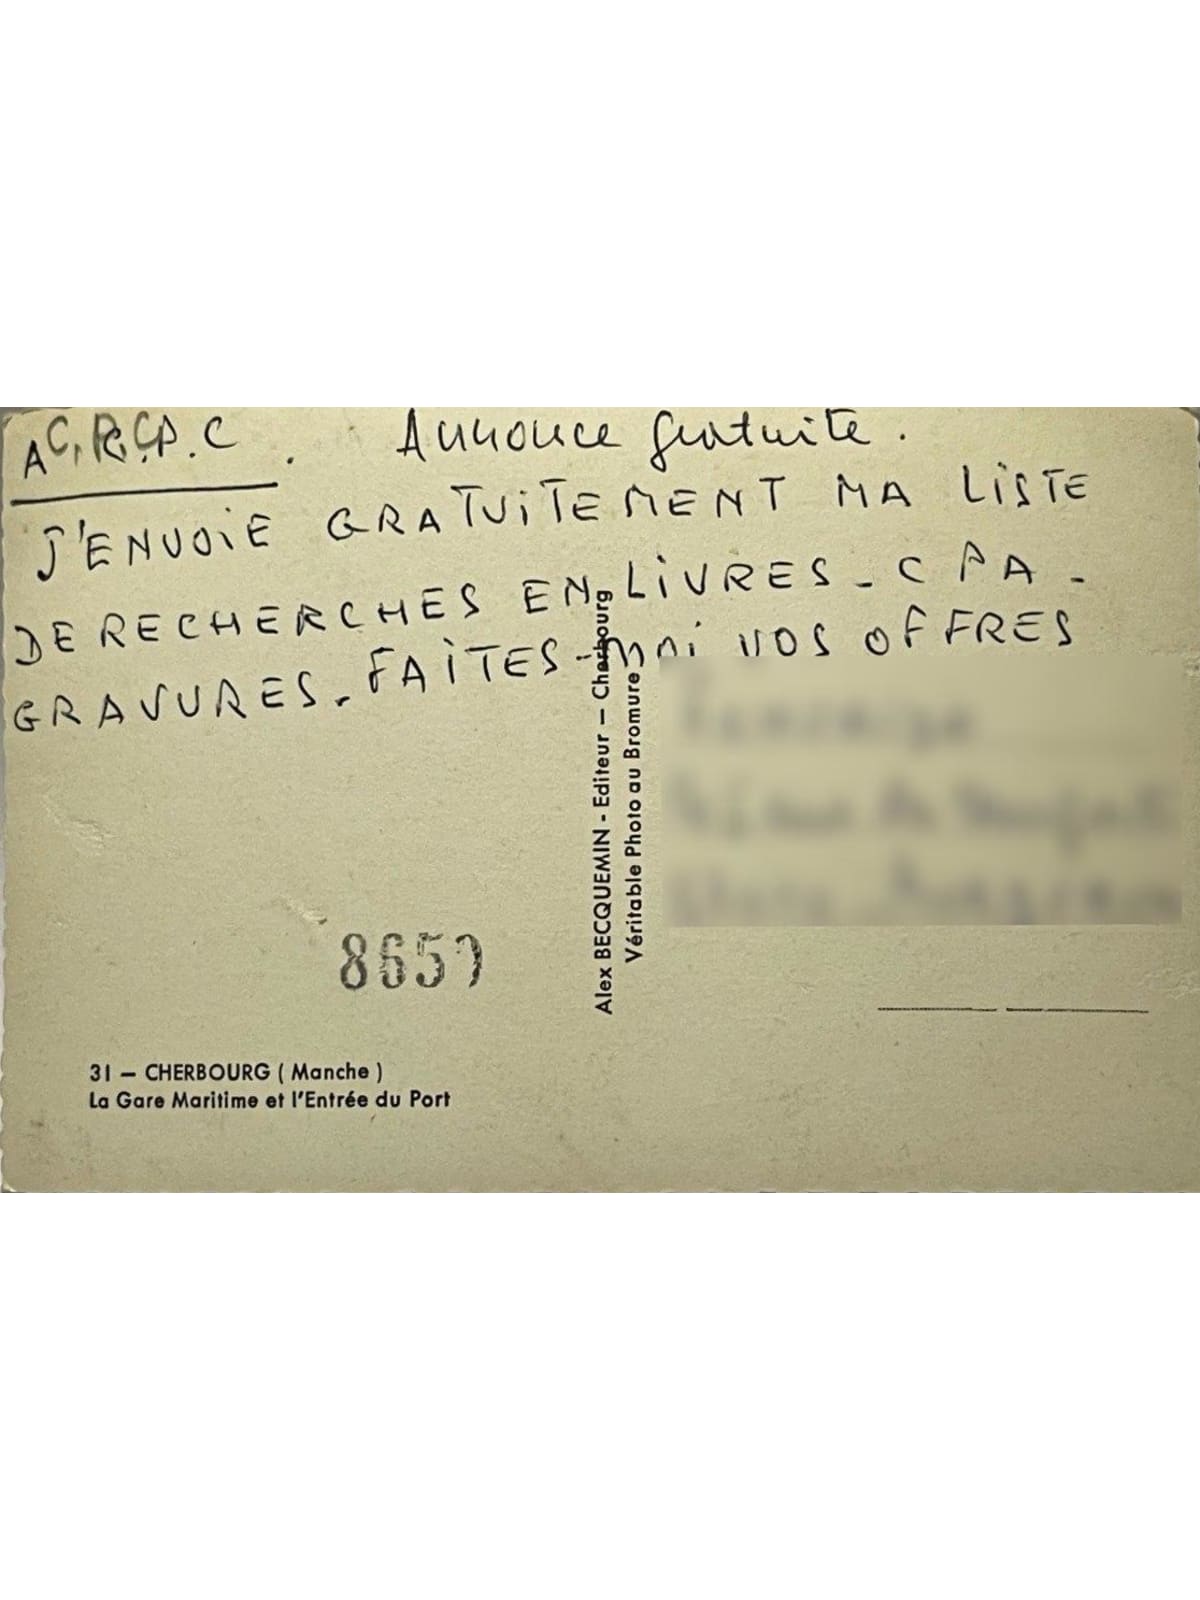 Annonce gratuite.
J'ENVOIE GRATUITEMENT MA LISTE
DE RECHERCHES EN LIVRES - CPA -
GRAVURES. FAITES-MOI VOS OFFRES
Alex BECQUEMIN - Editeur — Cherbourg
Véritable Photo au Bromure
865
31 — CHERBOURG ( Manche )
La Gare Maritime et l'Entrée du Port